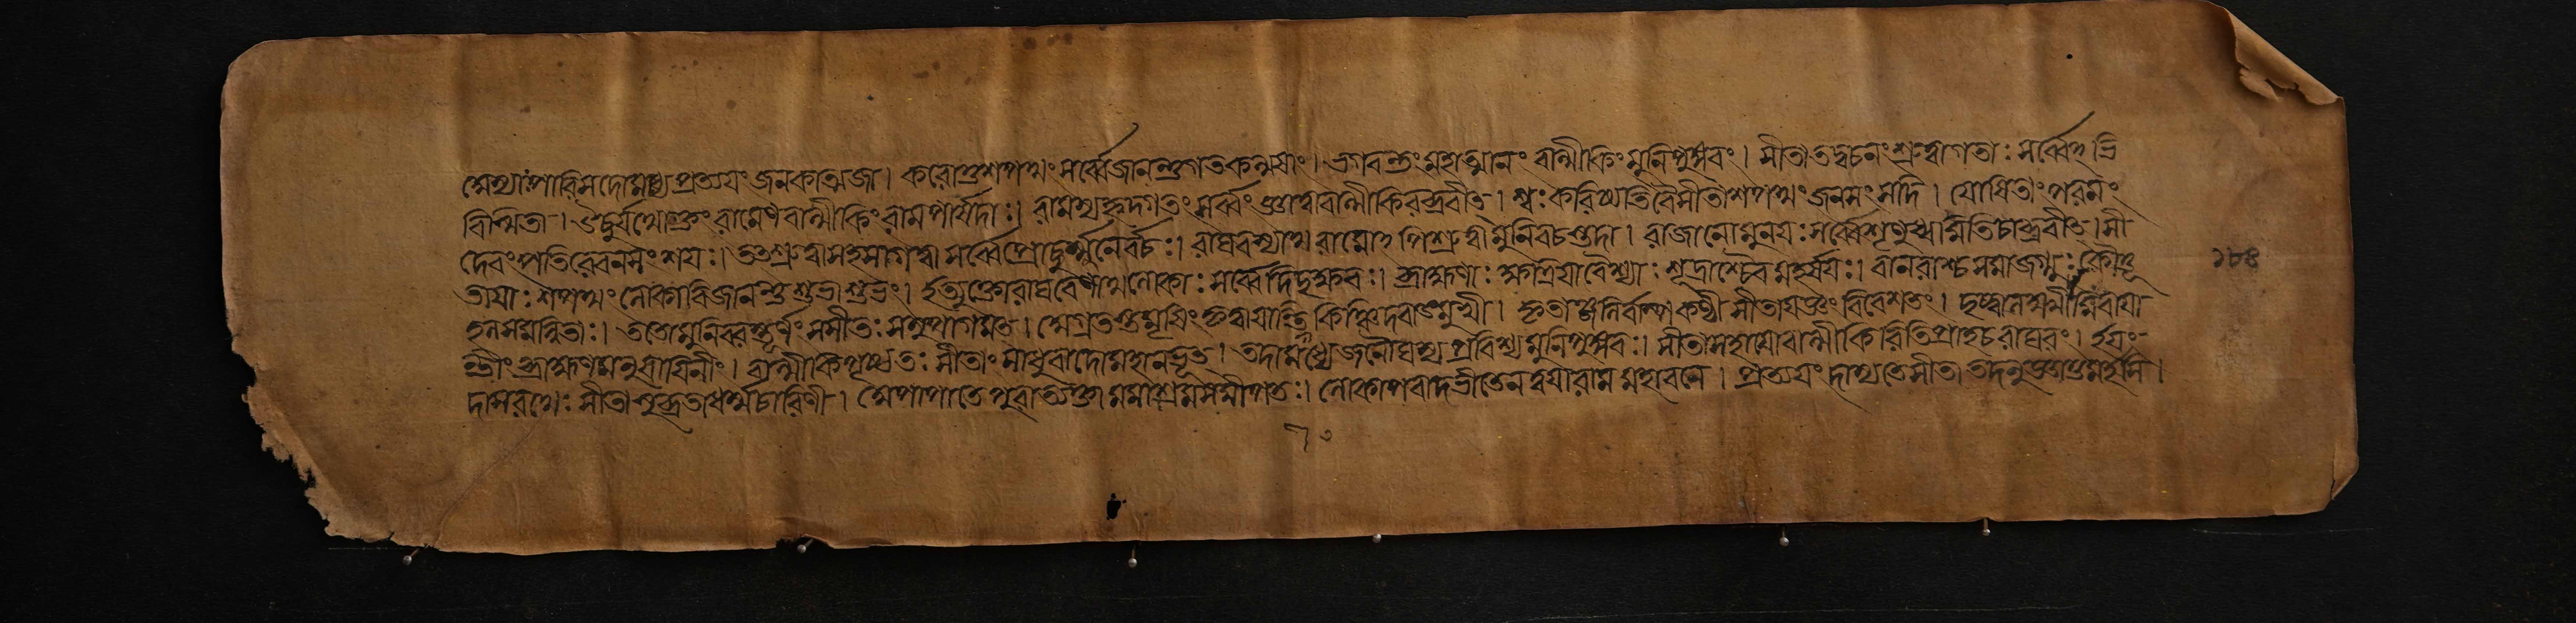 অস্যাং পারিসদোমধ্যে প্রত্যয়ং জনকাত্মজা । করোতু শপথং সর্ব্বে জানন্তু গতকল্মষাং । ভগবন্তং মহাত্মানং বাল্মীকিং মুনিপুঙ্গবং । সীতা তদ্বচনং শ্রুত্বা গতাঃ সর্ব্বেঽতি
বিস্মিতা । ঊচুর্যথোক্তং রামেণ বাল্মীকিং রাম পার্ষদাঃ । রামস্য হৃদ্গতং সর্ব্বং জ্ঞাত্বা বাল্মীকিরব্রবীৎ । শ্বঃ করিষ্যতি বৈ সীতা শপথং জনসংসদি । যোষিতাং পরমং
দেবং পতিরেব ন সংশয়ঃ । তৎশ্রুত্বা সহসা গত্বা সর্ব্বে প্রোচুর্ম্মুনের্বচঃ । রাঘবস্যাথ রামোঽপি শ্রুত্বা মুনিবচস্তদা । রাজানো মুনয়ঃ সর্ব্বে শৃণুধ্বমিতি চাব্রবীৎ । সী
তায়াঃ শপথং লোকা বিজানন্তু শুভাশুভং । ইত্যুক্তো রাঘবেণাথ লোকাঃ সর্ব্বে দিদৃক্ষবঃ । ব্রাহ্মণাঃ ক্ষত্রিয়া বৈশ্যাঃ শূদ্রাশ্চৈব মহর্ষয়ঃ । বানরাশ্চ সমাজগ্মুঃ কৌতূ
হলসমন্বিতাঃ । ততো মুনিবরস্তূর্ণং সসীতঃ সমুপাগমৎ । অগ্রতস্তমৃষিং কৃত্বা যান্তী কিঞ্চিদবাঙ্মুখী । কৃতাঞ্জলির্বাষ্পকণ্ঠী সীতা যজ্ঞং বিবেশ তং । দৃষ্ট্বা লক্ষ্মীমিবায়া
ন্তীং ব্রাহ্মণমনুযায়িনীং । বাল্মীকি পৃষ্ঠতঃ সীতাং সাধুবাদো মহানভূৎ । তদা মধ্যে জনৌঘস্য প্রবিশ্য মুনিপুঙ্গবঃ । সীতাসহায়ো বাল্মীকিরিতি প্রাহ চ রাঘবং । ইয়ং
দাসরথেঃ সীতা সুব্রতা ধর্ম্মচারিণী । অপাপা তে পুরা ত্যক্তা মমাশ্রমসমীপতঃ । লোকাপবাদভীতেন ত্বয়া রাম মহাবনে । প্রত্যয়ং দাস্যতে সীতা তদনুজ্ঞাতুমর্হসি ।
১৮৪